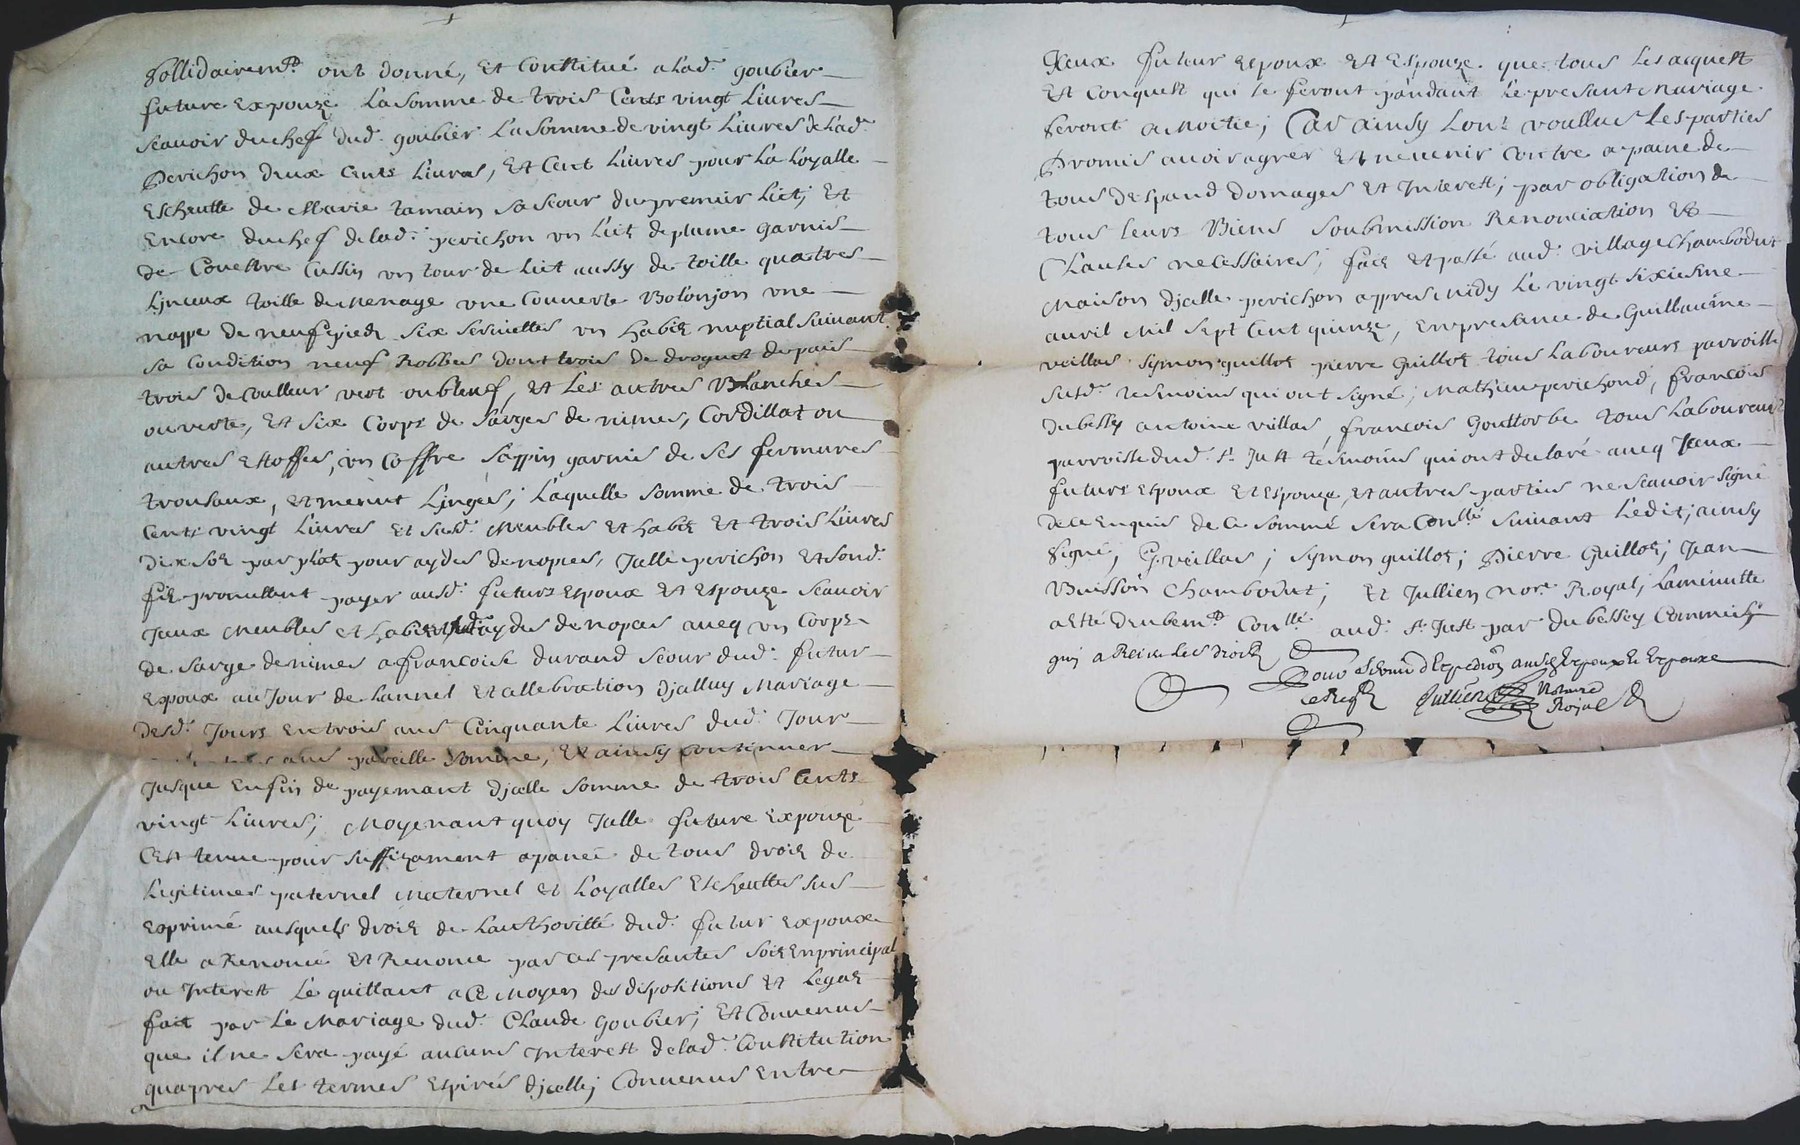 Sollidairemt ont donné, et Constitué a lad. goubier
future Expouze La somme de trois Cents vingt Livres
scavoir du chef dud. goubier La somme de vingt Livres de lad.
Perichon deux Cents Livres, et Cent Livres pour La Loyalle
Escheutte de Marie tamain sa seour du premier Lict; et
Encore du chef de lad. perichon un Lict de plume garnis
de Couettre Cussin un tour de Lict aussy de toille quatres
Linceux toille de Menage une Couverte Bolonjon une
nappe de neuf pieds six serviettes un habit nuptial suivant
sa Condition neuf Robbes dont trois de droguet du pais
trois de Coulleur vert ou bleuf, et Les autres Blanches
ou verte, et six Corps de sarges de nimes, Cordillat ou
autres Etoffes, un Coffre sappin garnis de ses fermures
trousaux, et menut Linges; Laquelle somme de trois
Cents vingt Livres et susd. Meubles et habit et trois Livres
dix sols par plat pour aydes de nopces, Jalle perichon et sond.
fils promettent payer ausd. futurs Espoux et Espouze scavoir
Jceux Meubles et habits et aydes de nopces avecq un Corps
de sarge de nimes a francoise durand seour dud. futur
Expoux au Jour de Lannel et cellebration djalluy Mariage
desd. Jours en trois ans Cinquante Livres dud. Jour
ans pareille somme, et ainsy continuer
Jusque Enfin de payemant djcelle somme de trois Cents
vingt Livres; Moyenant quoy Jalle future Expouze
C'est tenue pour suffizament apanée de tous droits de
Legitimes paternel Maternel et Loyalles Escheuttes sus
exprimé ausquels droits de Lauthoritté dud. futur Expoux
Elle a Renoncé et Renonce par ces presantes soit En principal
ou Interest Le quittant a ce Moyen des dispositions et Legats
fait par Le Mariage dud. Claude Goubier; et Convenus
que il ne sera payé aucuns Interest de lad. Constitution
quapres Les termes Expirés djcelle; Convenus Entre
Jceux futur Espoux et Espouze que tous Les acquest
et Conquest qui se feront pandant Le presant Mariage
seront a Moitié; Car ainsy Lont voullus Les parties
Promis avoir agreé et ne venir Contre a paine de
tous despand domages et Interest; par obligation de
tous Leurs Biens soubmission Renonciation et
Clauses necessaires; fait et passé aud. village Chambodut
Maison djcelle perichon appres Midy Le vingt sixiesme
avril Mil sept Cent quinze, En presence de Guillaume
veillas symon guillot pierre Guillot tous Laboureurs parroisse
susd. tesmoins qui ont signé; Mathieu perichond, francois
dubessy antoine villas, francois Gouttorbe tous Laboureurs
parroisse dud. st. Just tesmoins qui ont declaré avecq Jceux
futurs Espoux et Espouze, et autres parties ne scavoir signé
de ce Enquis de Ce sommé sera Conllé suivant Ledit; ainsy
signé, G. veillas; symon guillot; Pierre Guillot; Jean
Buisson Chambodut; et Jullien nore. Royal; La minutte
a esté deubemt Conllé aud. st. Just par dubessey Commis
qui a Reçu Les droits
Pour servir d'Expedition ausd. Expoux et Expouze
Jullien Notaire
Royal